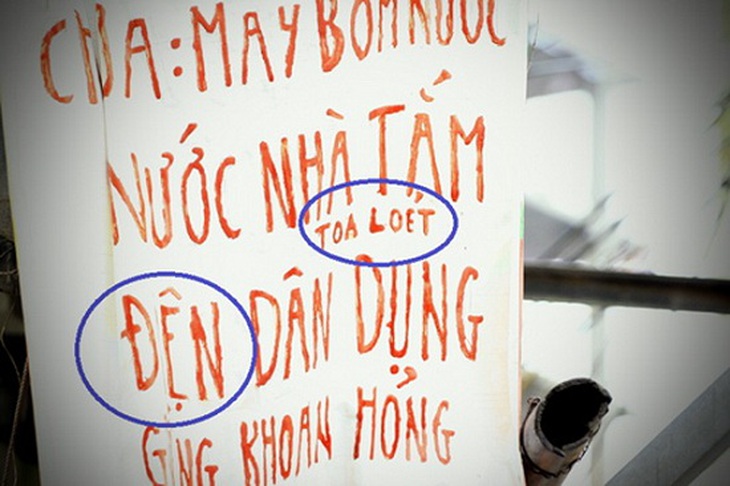 CHA: MAY BOM NUOC
NƯỚC NHÀ TẤM
TOA LOET
ĐỆN DÂN DỤNG
GING KHOAN HỎNG